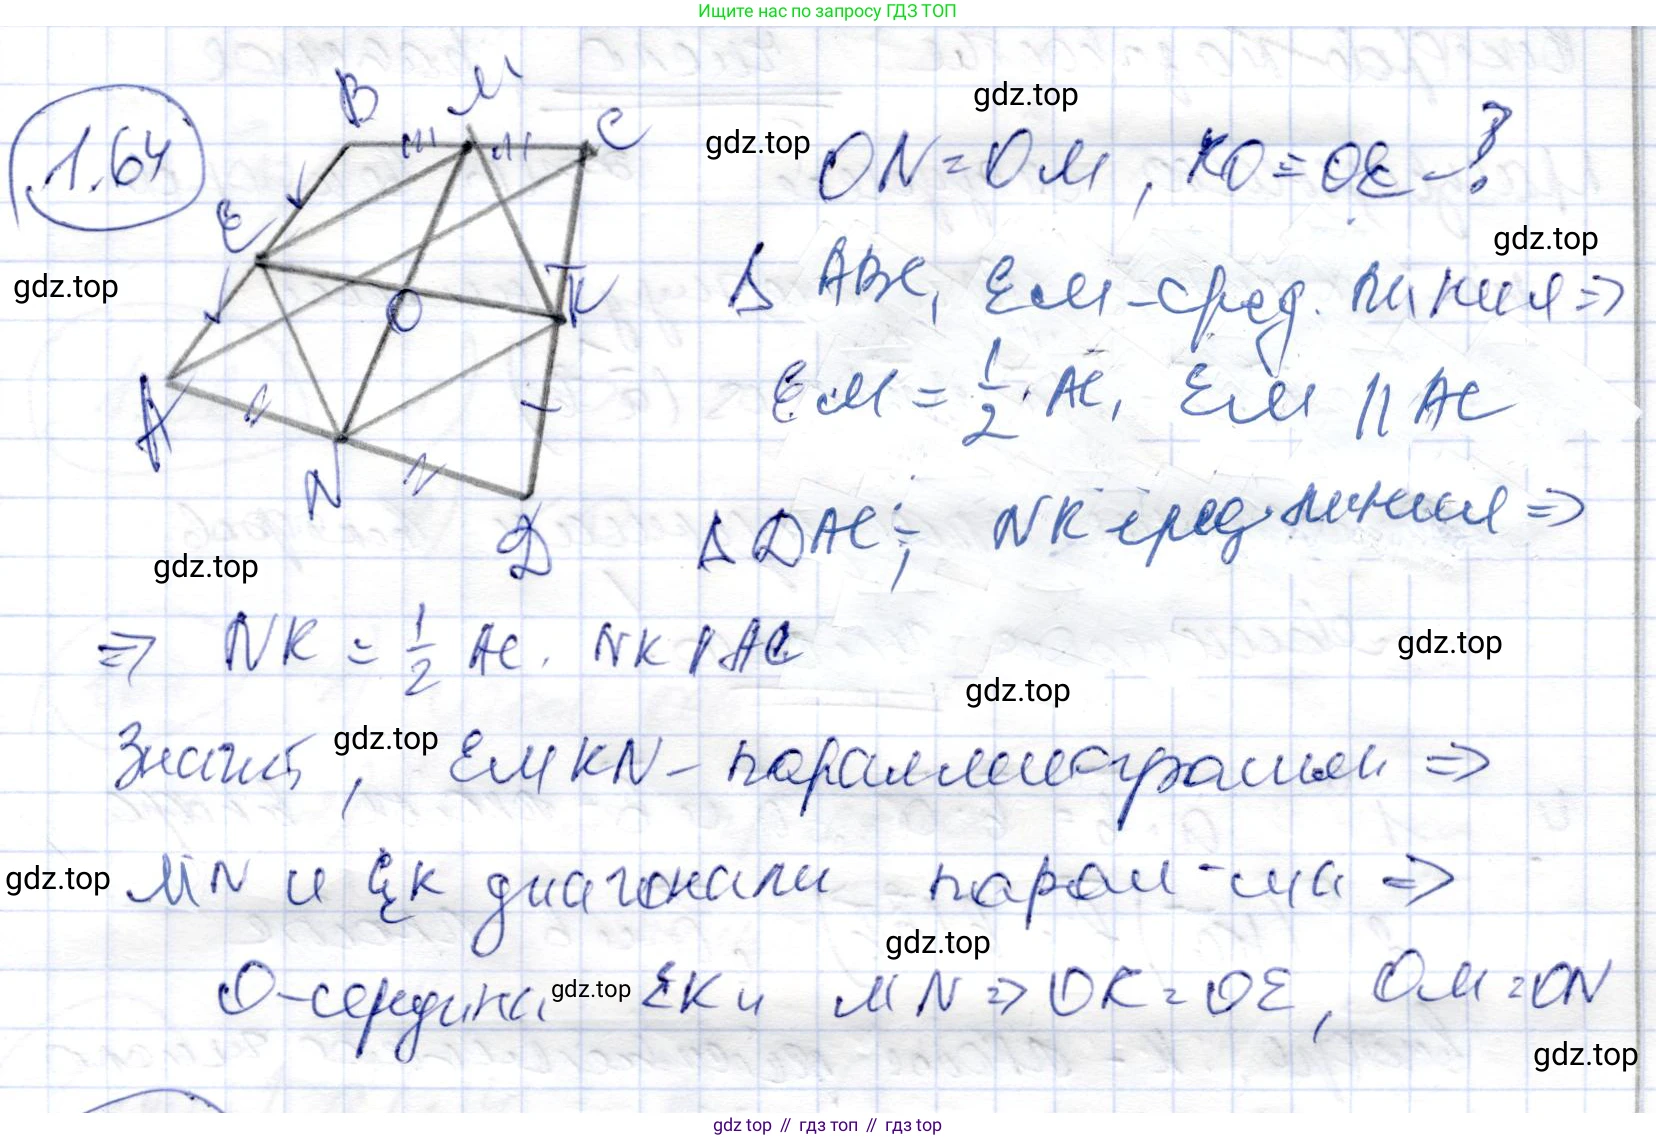 Ищите нас по запросу ГДЗ ТОП
1.64
B M C
gdz.top
gdz.top
ON = OM, KO = OE - ?
E
gdz.top
gdz.top
K
O
Δ ABC, EM - сред. линия ⇒
EM = 1/2 · AC, EM || AC
A
N
D
Δ DAC; NK сред. линия ⇒
gdz.top
⇒ NK = 1/2 AC. NK || AC
gdz.top
gdz.top
Значит, EMKN - параллелограмм ⇒
gdz.top
MN и EK диагонали парал-ма ⇒
gdz.top
gdz.top
O - середина EK и MN ⇒ OK = OE, OM = ON
gdz.top
gdz.top
gdz top // гдз топ // гдз top